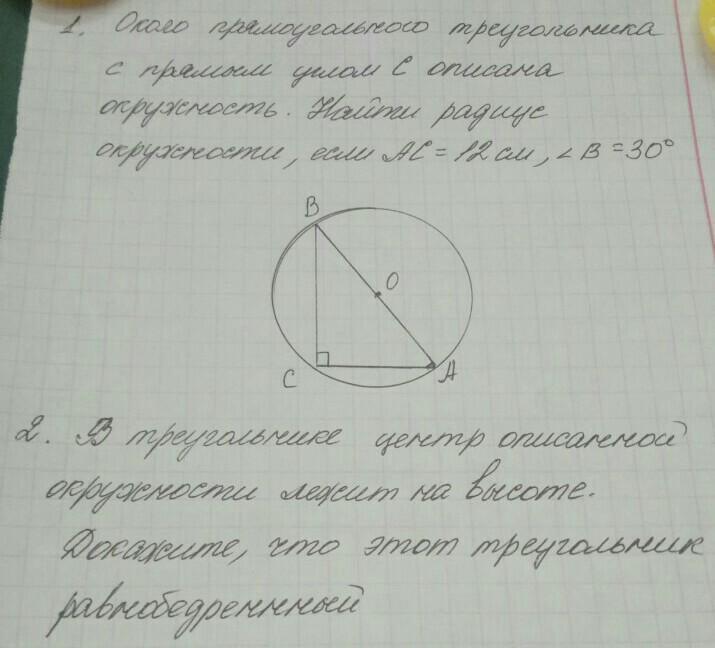 1. Около прямоугольного треугольника
с прямым углом C описана
окружность. Найти радиус
окружности, если AC = 12 см, ∠B = 30°
B
O
C
A
2. В треугольнике центр описанной
окружности лежит на высоте.
Докажите, что этот треугольник
равнобедренный